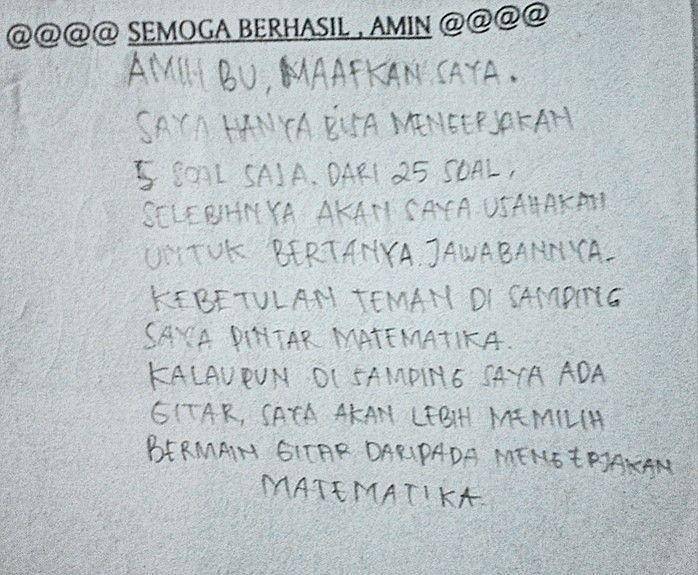 @@@@ SEMOGA BERHASIL , AMIN @@@@
AMIN BU, MAAFKAN SAYA.
SAYA HANYA BISA MENGERJAKAN
5 SOAL SAJA. DARI 25 SOAL,
SELEBIHNYA AKAN SAYA USAHAKAN
UNTUK BERTANYA JAWABANNYA.
KEBETULAN TEMAN DI SAMPING
SAYA PINTAR MATEMATIKA.
KALAUPUN DI SAMPING SAYA ADA
GITAR, SAYA AKAN LEBIH MEMILIH
BERMAIN GITAR DARIPADA MENGERJAKAN
MATEMATIKA.